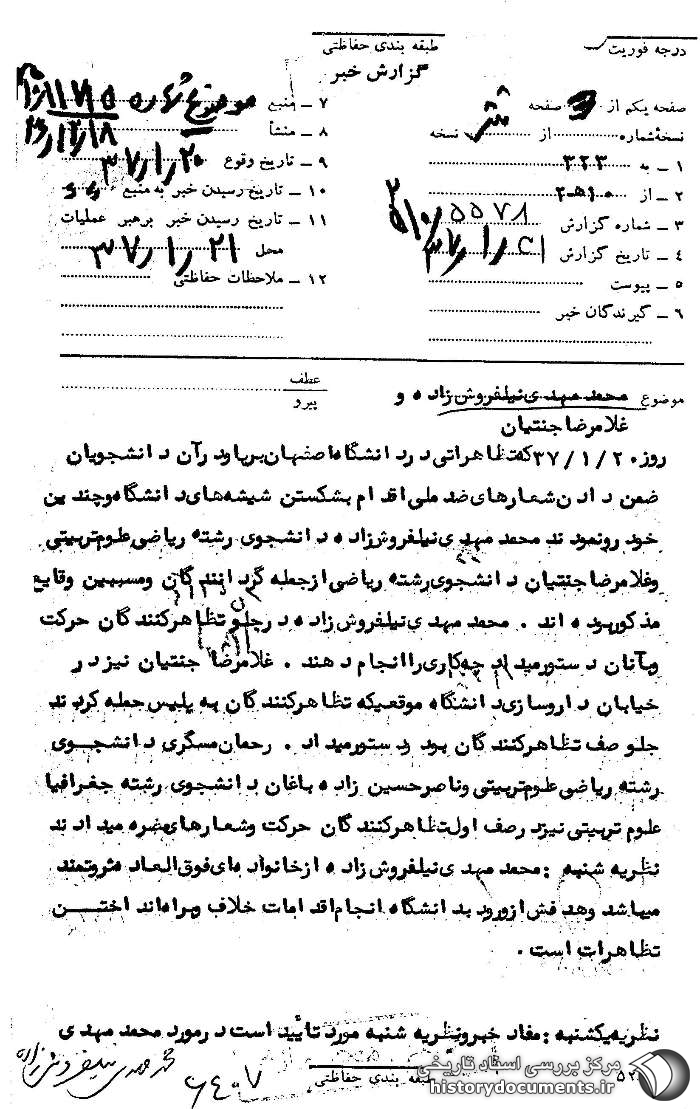 طبقه بندی حفاظتی
درجه فوریت
گزارش خبر
صفحه یکم از صفحه
نسخهٔ شماره از نسخه
۱ – به ۳۲۳
۲ – از
۳ – شماره گزارش ۵۵۷۸
۴ – تاریخ گزارش
۵ – پیوست
۶ – گیرندگان خبر
۷ – منبع
۸ – منشأ
۹ – تاریخ وقوع ۳۷/۱/۲۰
۱۰ – تاریخ رسیدن خبر به منبع
۱۱ – تاریخ رسیدن خبر برهبر عملیات
محل ۳۷/۱/۲۱
۱۲ – ملاحظات حفاظتی
موضوع محمد مهدی نیلفروش زاده و
غلامرضا جنتیان
عطف
پیرو
روز ۳۷/۱/۲۰ که تظاهراتی در دانشگاه اصفهان برپا و در آن دانشجویان
ضمن دادن شعارهای ضد ملی اقدام بشکستن شیشه های دانشگاه و چندین
خود رو نمودند محمد مهدی نیلفروش زاده دانشجوی رشته ریاضی علوم تربیتی
و غلامرضا جنتیان دانشجوی رشته ریاضی از جمله گردانندگان و مسببین وقایع
مذکور بوده اند . محمد مهدی نیلفروش زاده در جلو تظاهرکنندگان حرکت
و بآنان دستور میداد چه کاری را انجام دهند . غلامرضا جنتیان نیز در
خیابان داروسازی دانشگاه موقعیکه تظاهرکنندگان به پلیس حمله کردند
جلو صف تظاهرکنندگان بود و دستور میداد . رحمان مسگری دانشجوی
رشته ریاضی علوم تربیتی و ناصر حسین زاده باغان دانشجوی رشته جغرافیا
علوم تربیتی نیز در صف اول تظاهرکنندگان حرکت و شعارهای مضره میدادند
نظریه شنبه : محمد مهدی نیلفروش زاده از خانواده ای فوق العاده ثروتمند
میباشد و هدفش از ورود بدانشگاه انجام اقدامات خلاف و براه انداختن
تظاهرات است .
نظریه یکشنبه : مفاد خبر و نظریه شنبه مورد تأیید است در مورد محمد مهدی
طبقه بندی حفاظتی
محمد مهدی نیلفروش زاده
۶۴۰۷
مرکز بررسی اسناد تاریخی
historydocuments.ir